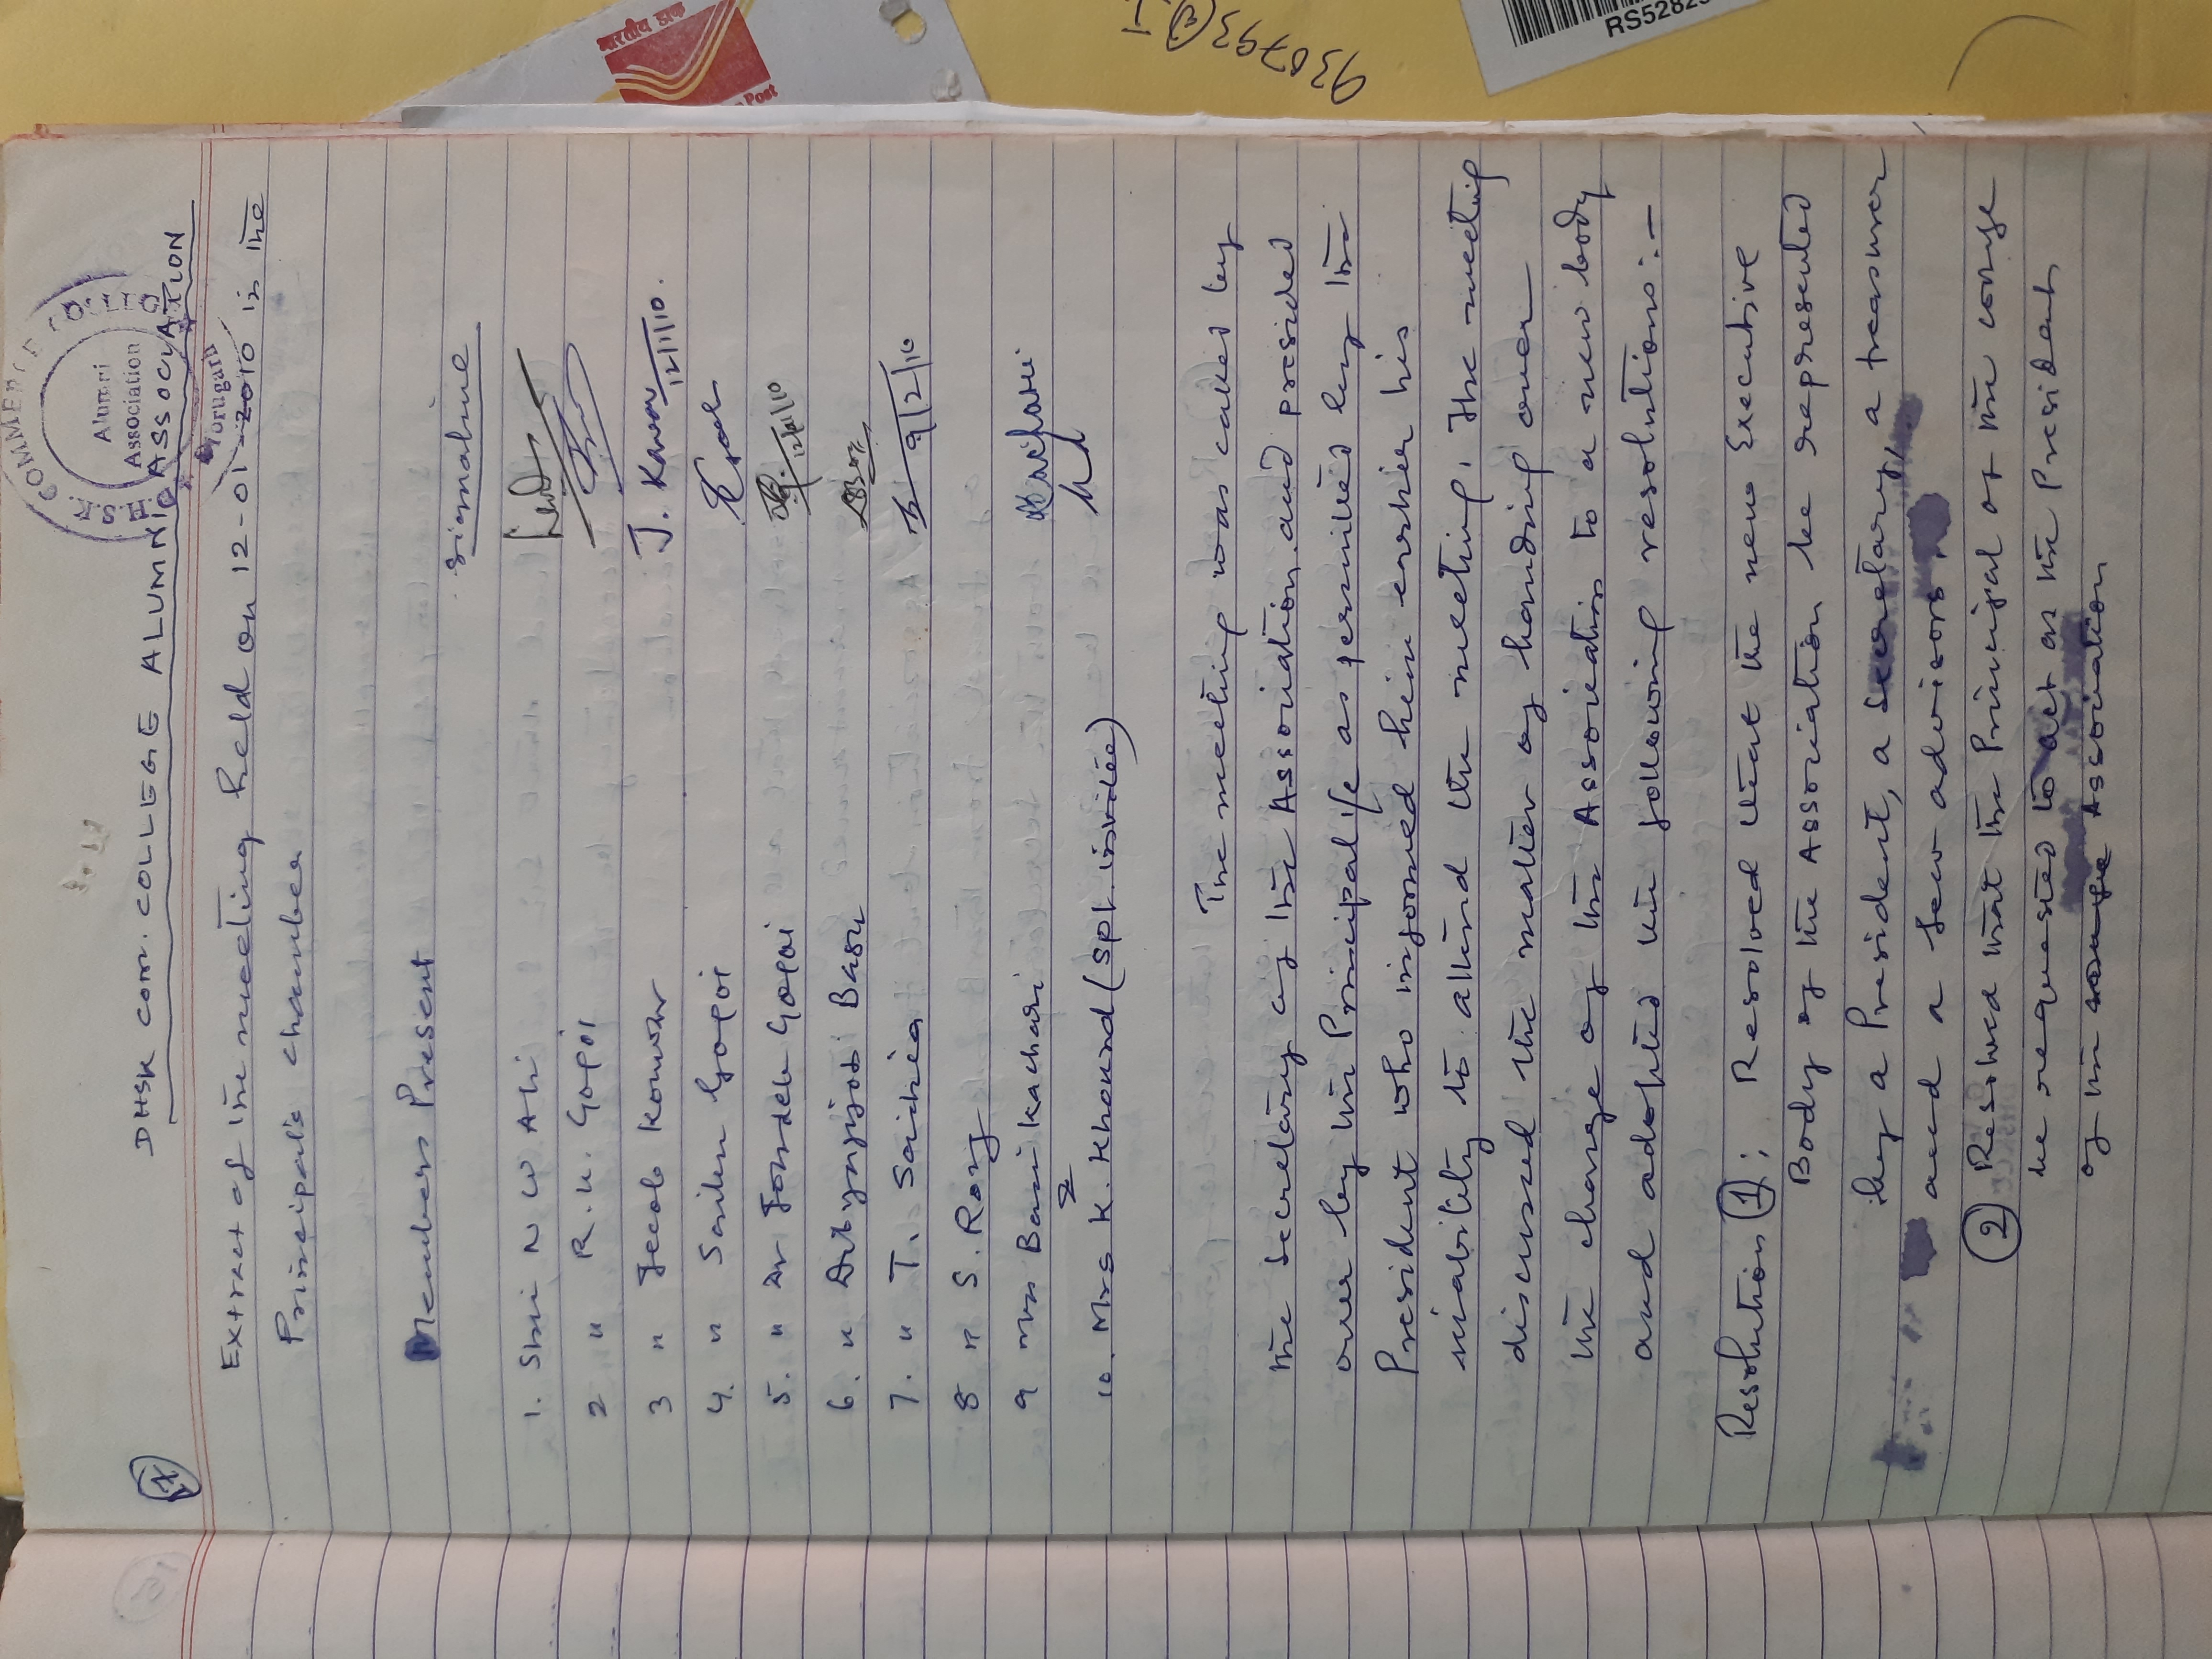 DHSK COM. COLLEGE ALUMNI ASSOCIATION
COMMERCE CO
D.H.S.K.
Alumni
Association
Extract of the meeting held on 12-01-2010 in the
Principal's chamber
Members Present
Signature
1. Shri N W Ali
2 " R. K. Gogoi
3 " Jecob Konwar J. Konwar 12/1/10.
4. " Sailen Gogoi
5. " Dr Gogoi 12/1/10
6. " Dibyajyoti Basu
7. " T. Saikia 9/2/10
8 " S. Roy
9 Mrs Banti Kachari
10. Mrs K. Khound (Spl. invitee)
The meeting was called by
the secretary of the Association and presided
over by the Principal i/c as permitted by the
President who informed him earlier his
inability to attend the meeting. The meeting
discussed the matter of handing over
the charge of the Association to a new body
and adopted the following resolutions:-
Resolution (1): Resolved that the new Executive
Body of the Association be represented
by a President, a secretary, a treasurer
and a few advisors.
(2) Resolved that the Principal of the college
be requested to act as the President
of the Association
RS5282
930793
Post